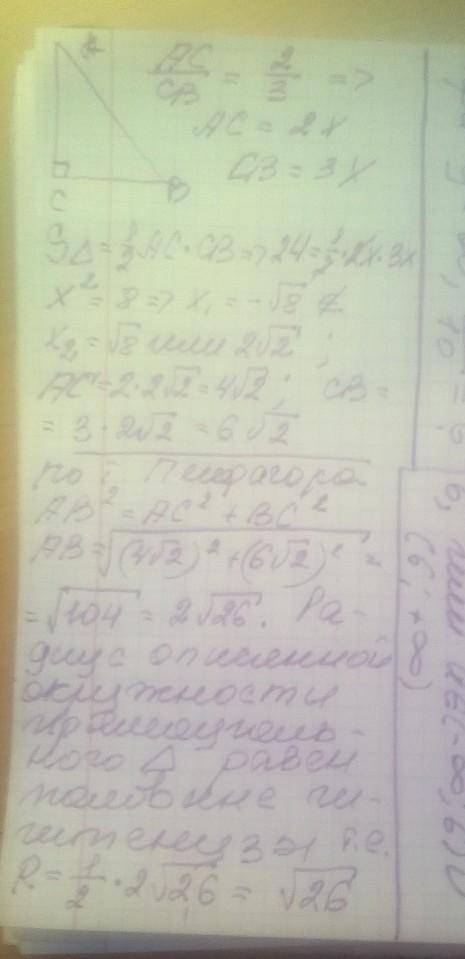 A
AC/CB = 2/3 =>
AC = 2x
CB = 3x
C B
S△ = 1/2 AC · CB => 24 = 1/2 · 2x · 3x
x² = 8 => x₁ = -√8 ∉
x₂ = √8 или 2√2 ;
AC = 2·2√2 = 4√2 ; CB =
= 3·2√2 = 6√2
по т. Пифагора
AB² = AC² + BC²
AB = √(4√2)² + (6√2)² =
= √104 = 2√26. Ра-
диус описанной
окружности
прямоуголь-
ного △ равен
половине ги-
потенузы т.е.
R = 1/2 · 2√26 = √26
(6; +∞)